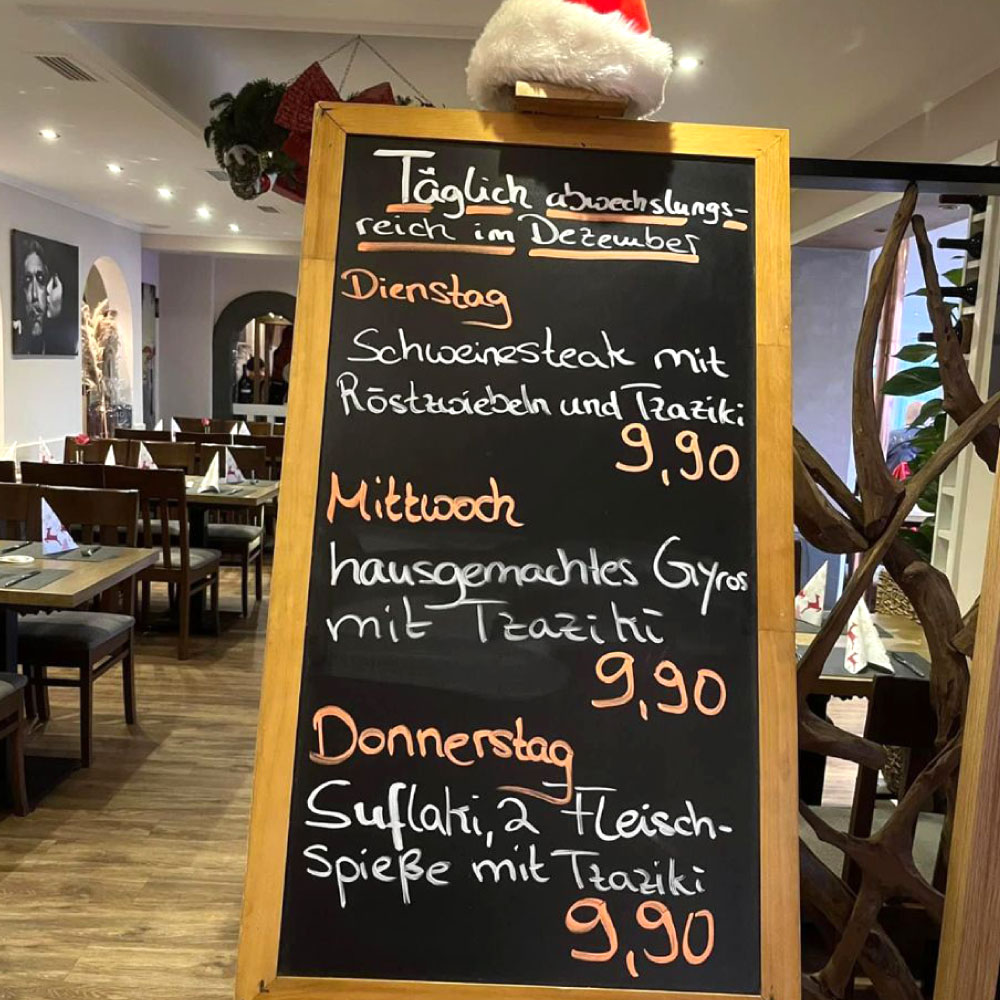 Täglich abwechslungs-
reich im Dezember
Dienstag
Schweinesteak mit
Röstzwiebeln und Tzaziki
9,90
Mittwoch
hausgemachtes Gyros
mit Tzaziki
9,90
Donnerstag
Suflaki, 2 Fleisch-
spieße mit Tzaziki
9,90